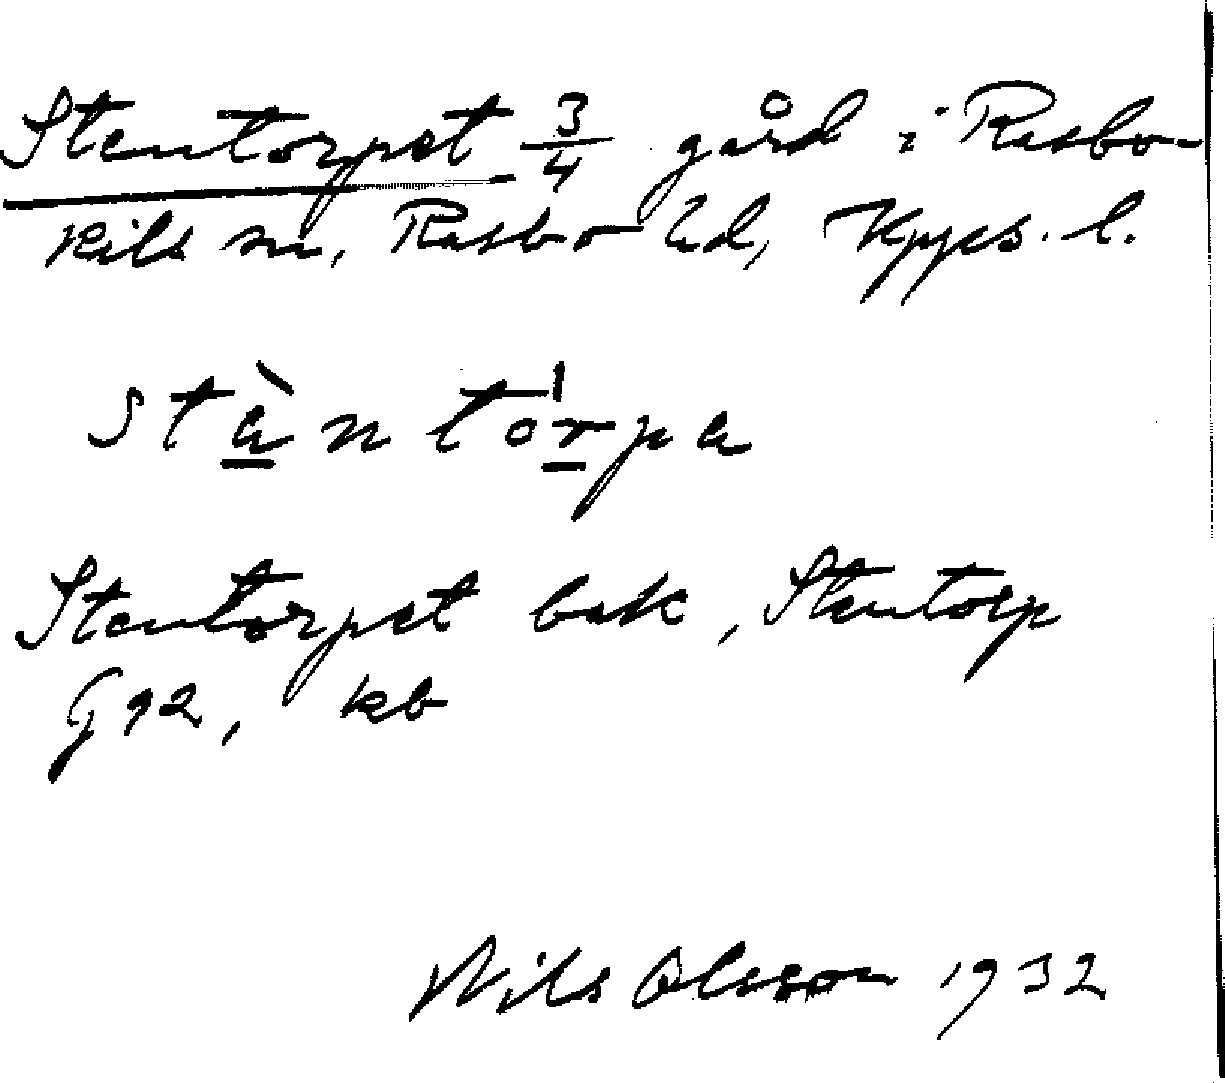 Stentorpet 3/4 gård i Rasbo-
kils sn, Rasbo hd, Upps. l.
stàntórpa
Stentorpet bak, Stentorp
G 92, kb
Nils Olsson 1932